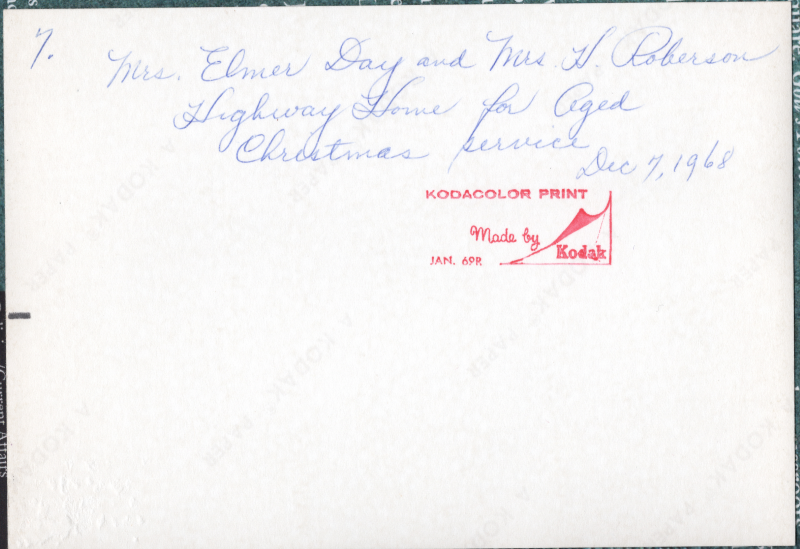 7.
Mrs. Elmer Day and Mrs. H. Roberson
Highway Home for Aged
Christmas service
Dec 7, 1968
KODACOLOR PRINT
Made by
Kodak
JAN. 69R
A KODAK PAPER
A KODAK PAPER
A KODAK PAPER